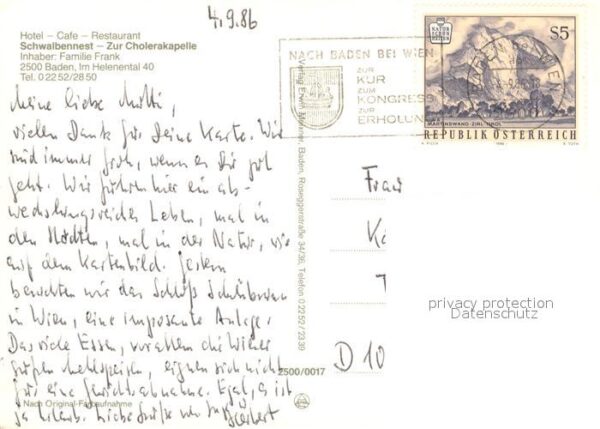 4.9.86
Hotel – Cafe – Restaurant
Schwalbennest – Zur Cholerakapelle
Inhaber: Familie Frank
2500 Baden, Im Helenental 40
Tel. 0 22 52/28 50
Meine liebe Mutti,
vielen Dank für Deine Karte. Wir
sind immer froh, wenn es Dir gut
geht. Wir führen hier ein ab-
wechslungsreiches Leben, mal in
den Städten, mal in der Natur, wie
auf dem Kartenbild. Gestern
besuchten wir das Schloß Schönbrunn
in Wien, eine imposante Anlage.
Das viele Essen, vor allem die Wiener
süßen Mehlspeisen, eignen sich nicht
für eine Gewichtsabnahme. Egal, es ist
ja Urlaub. Liebe Grüße von
2500/0017
Nach Original-Farbaufnahme
Verlag Erwin Baden, Roseggerstraße 34/36, Telefon 0 22 52/23 39
NACH BADEN BEI WIEN
ZUR
KUR
ZUM
KONGRESS
ZUR
ERHOLUNG
S5
MARTINSWAND-ZIRL·TIROL
REPUBLIK ÖSTERREICH
Frau
D 10
privacy protection
Datenschutz